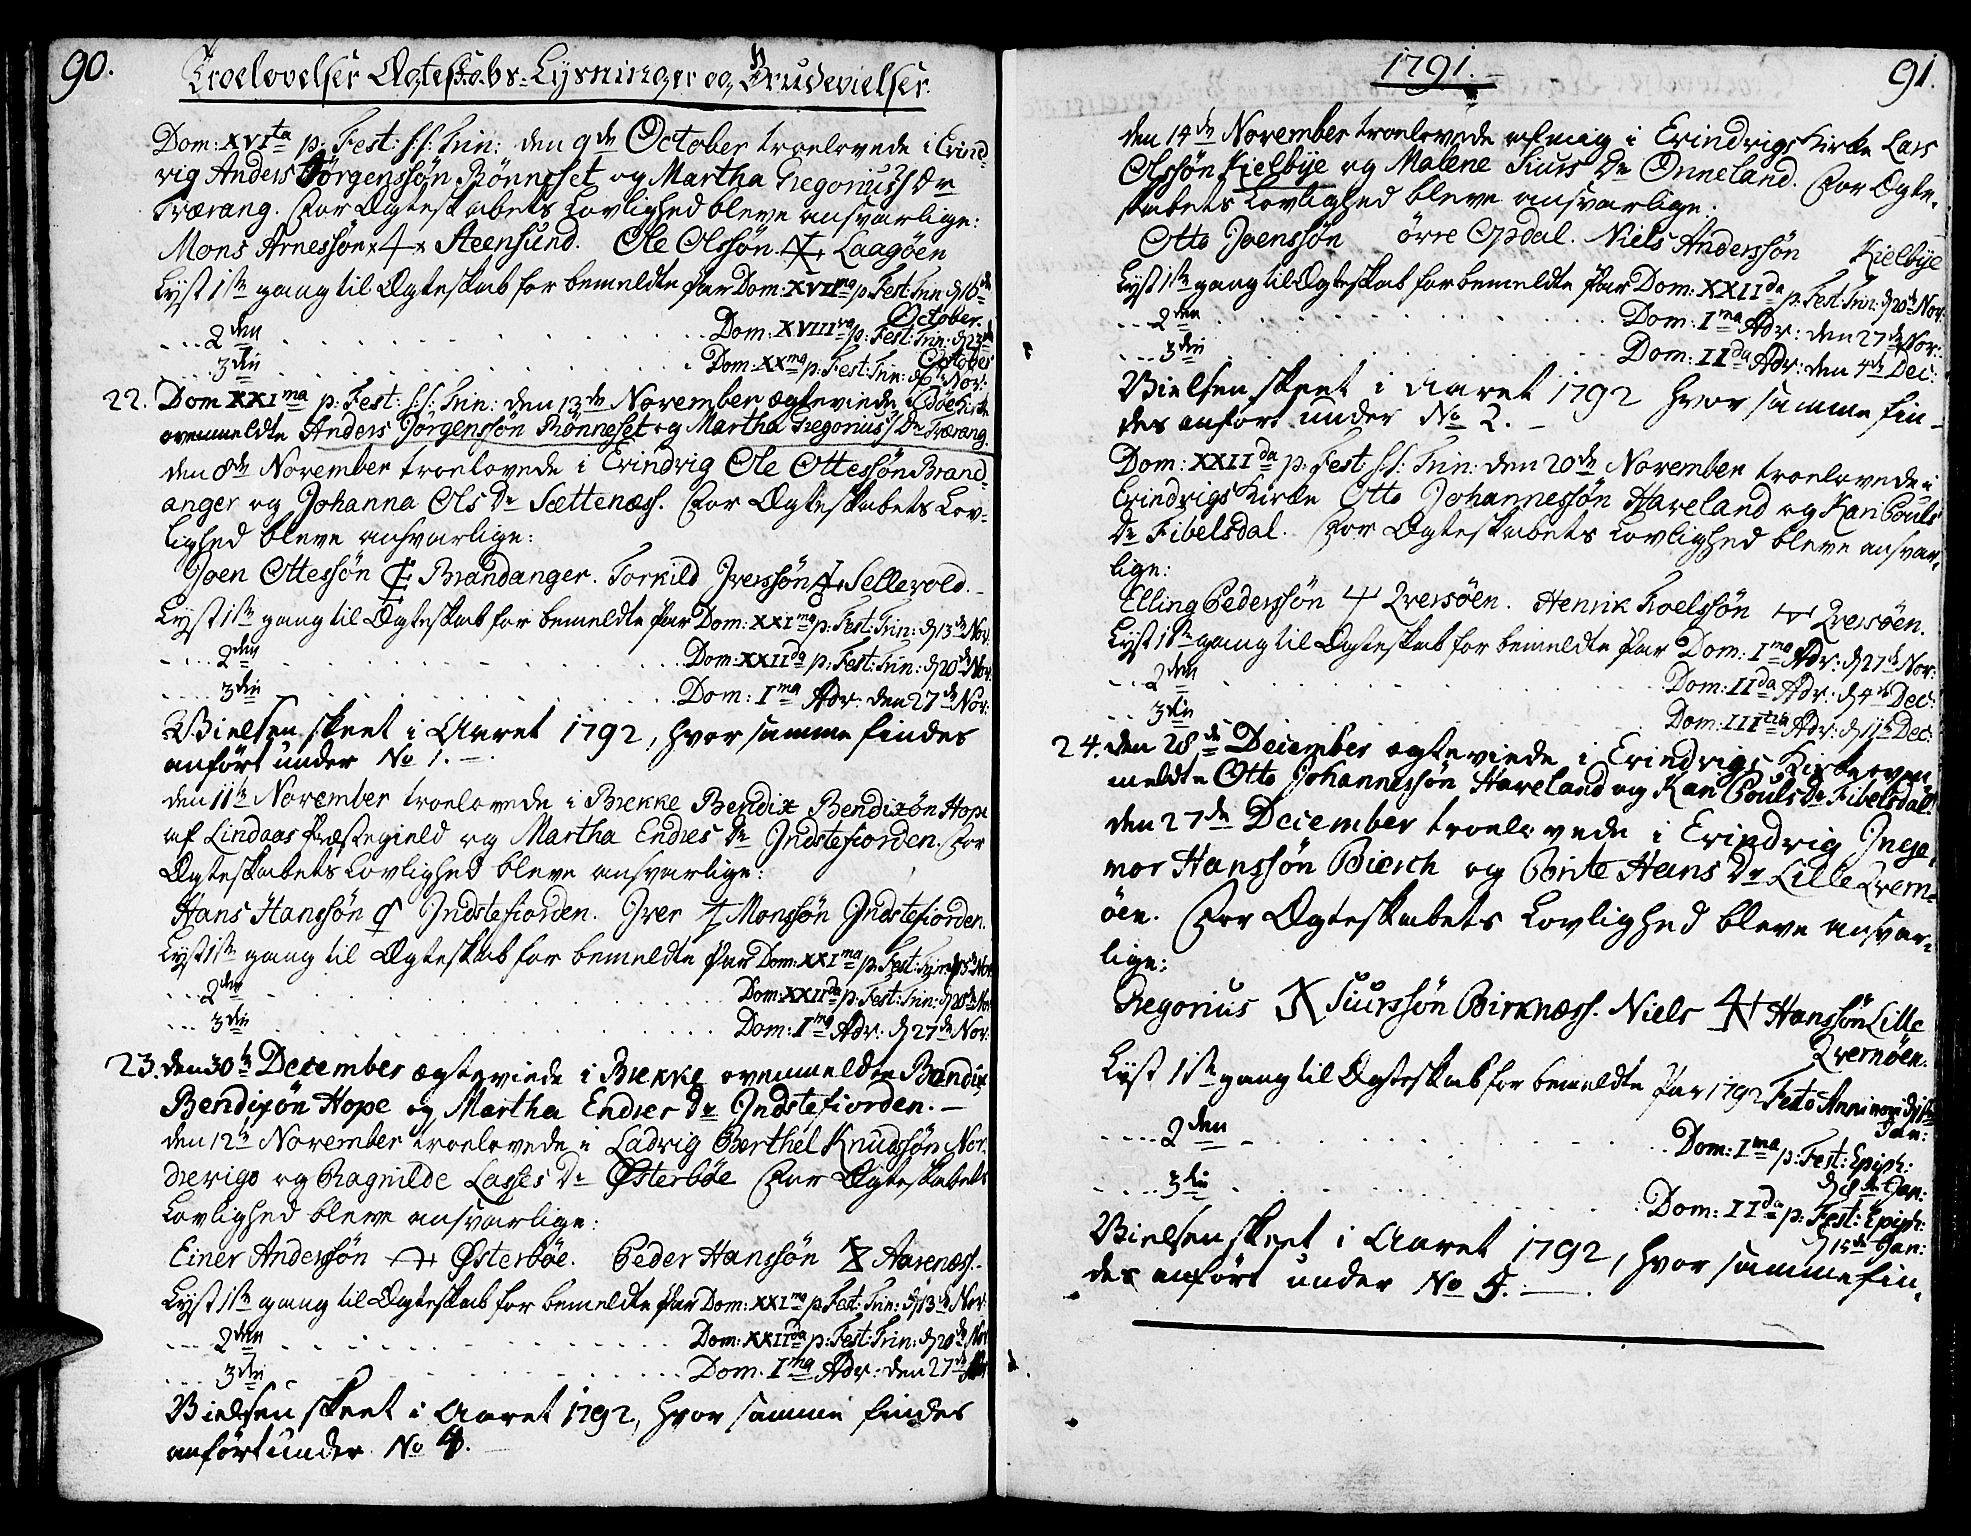 90.
Troelovelser Ægteskabs-Lysninger og Brudevielser.
Dom: XVIta p: Fest: S:S: Trin: den 9de October troelovede i Evind-
vig Anders Jörgenssön Rönneset og Martha Gregorius Dr
Træerang. For Ægteskabets Lovlighed bleve ansvarlige:
Mons Arnessön Steensund. Ole Olssön Laagöen
Lyst 1ste gang til Ægteskab for bemeldte Par Dom: XVIIma p: Fest: Trin: d 16de
October.
... 2den ... Dom: XVIIIva p: Fest: Trin: d 23de
October
... 3die ... Dom: XXma p: Fest: Trin: d 6te Nov:
22. Dom XXIma p: Fest: S:S: Trin: den 13de November ægteviede i Kirke
ovenmeldte Anders Jörgenssön Rönneset og Martha Gregorius Dr Træerang.
den 8de November troelovede i Evindvig Ole Ottessön Brand-
anger og Johanna Ols Dr Sættenæss. For Ægteskabets Lov-
lighed bleve ansvarlige:
Joen Ottessön Brandanger. Torkild Iverssön Sellevold.
Lyst 1ste gang til Ægteskab for bemeldte Par Dom: XXIma p: Fest: Trin: d 13de Nov:
.... 2den ... Dom: XXIIda p: Fest: Trin: d 20de Nov:
.... 3die ... Dom: Ima Adv: den 27de Nov:
Vielsen skeet i Aaret 1792, hvor samme findes
anfört under No 1.
den 11te November troelovede i Brekke Bendix Bendixön Hope
af Lindaas Præstegield og Martha Endres Dr Indstefiorden. For
Ægteskabets Lovlighed bleve ansvarlige:
Hans Hanssön Indstefiorden. Iver Monssön Indstefiorden.
Lyst 1ste gang til Ægteskab for bemeldte Par Dom: XXIma p: Fest: Trin: d 13de Nov
... 2den ... Dom: XXIIda p: Fest: Trin: d 20de Nov
... 3die ... Dom: Ima Adv: d 27de Nov:
23. den 30te December ægteviede i Brekke ovenmeldte Bendix
Bendixön Hope og Martha Endres Dr Indstefiorden. —
den 12te November troelovede i Ladvig Berthel Knudssön Nor-
drevigs og Ragnilde Lasses Dr Østerbøe For Ægteskabets
Lovlighed bleve ansvarlige:
Einer Anderssön Østerbøe. Peder Hanssön Aarenæss.
Lyst 1ste gang til Ægteskab for bemeldte Par Dom: XXIma p: Fest: Trin: d 13de Nov:
... 2den ... Dom: XXIIda p: Fest: Trin: d 20de Nov
... 3die ... Dom. Ima Adv: den 27de Nov
Vielsen skeet i Aaret 1792, hvor samme findes
anfört under No 4.
1791.
91.
den 14de November troelovede af mig i Evindvigs Kirke Lars
Olssön Kielbye og Malene Siurs Dr Onneland. For Ægte-
skabets Lovlighed bleve ansvarlige:
Otto Joenssön övre Opdal. Niels Anderssön Kielbye
Lyst 1ste gang til Ægteskab for bemeldte Par Dom: XXIIda p: Fest: Trin: d 20de Nov:
... 2den ... Dom: Ima Adv: den 27de Nov:
.... 3die ... Dom: IIda Adv: den 4de Dec:
Vielsen skeet i Aaret 1792 hvor samme fin-
des anfört under No 2. —
Dom: XXIIda p: Fest: S:S: Trin: den 20de November troelovede i
Evindvigs Kirke Otto Johannessön Haveland og Kari Pouls
Dr Fibelsdal. For Ægteskabets Lovlighed bleve ansvar-
lige:
Elling Pederssön Qversöen. Henrik Troelssön Qversöen.
Lyst 1ste gang til Ægteskab for bemeldte Par Dom: Ima Adv: d 27de Nov:
... 2den ... Dom: IIda Adv: d 4de Dec:
... 3die ... Dom: IIItia Adv: d 11te Dec:
24. den 28de December ægteviede i Evindvigs Kirke oven-
meldte Otto Johannessön Haveland og Kari Pouls Dr Fibelsdal.
den 27de December troelovede i Evindvig Inge-
mor Hanssön Bierch og Brite Hans Dr Lille Qvern-
öen. For Ægteskabets Lovlighed bleve ansvar-
lige:
Gregorius Siurssön Birknæss. Niels Hanssön Lille
Qvernöen.
Lyst 1ste gang til Ægteskab for bemeldte Par 1792 Festo Anni novi d 1ste
Jan:
.... 2den ... Dom: Ima p: Fest: Epiph:
d 8de Jan:
.... 3die ... Dom: IIda p: Fest: Epiph:
d 15de Jan:
Vielsen skeet i Aaret 1792, hvor samme fin-
des anfört under No 5. —